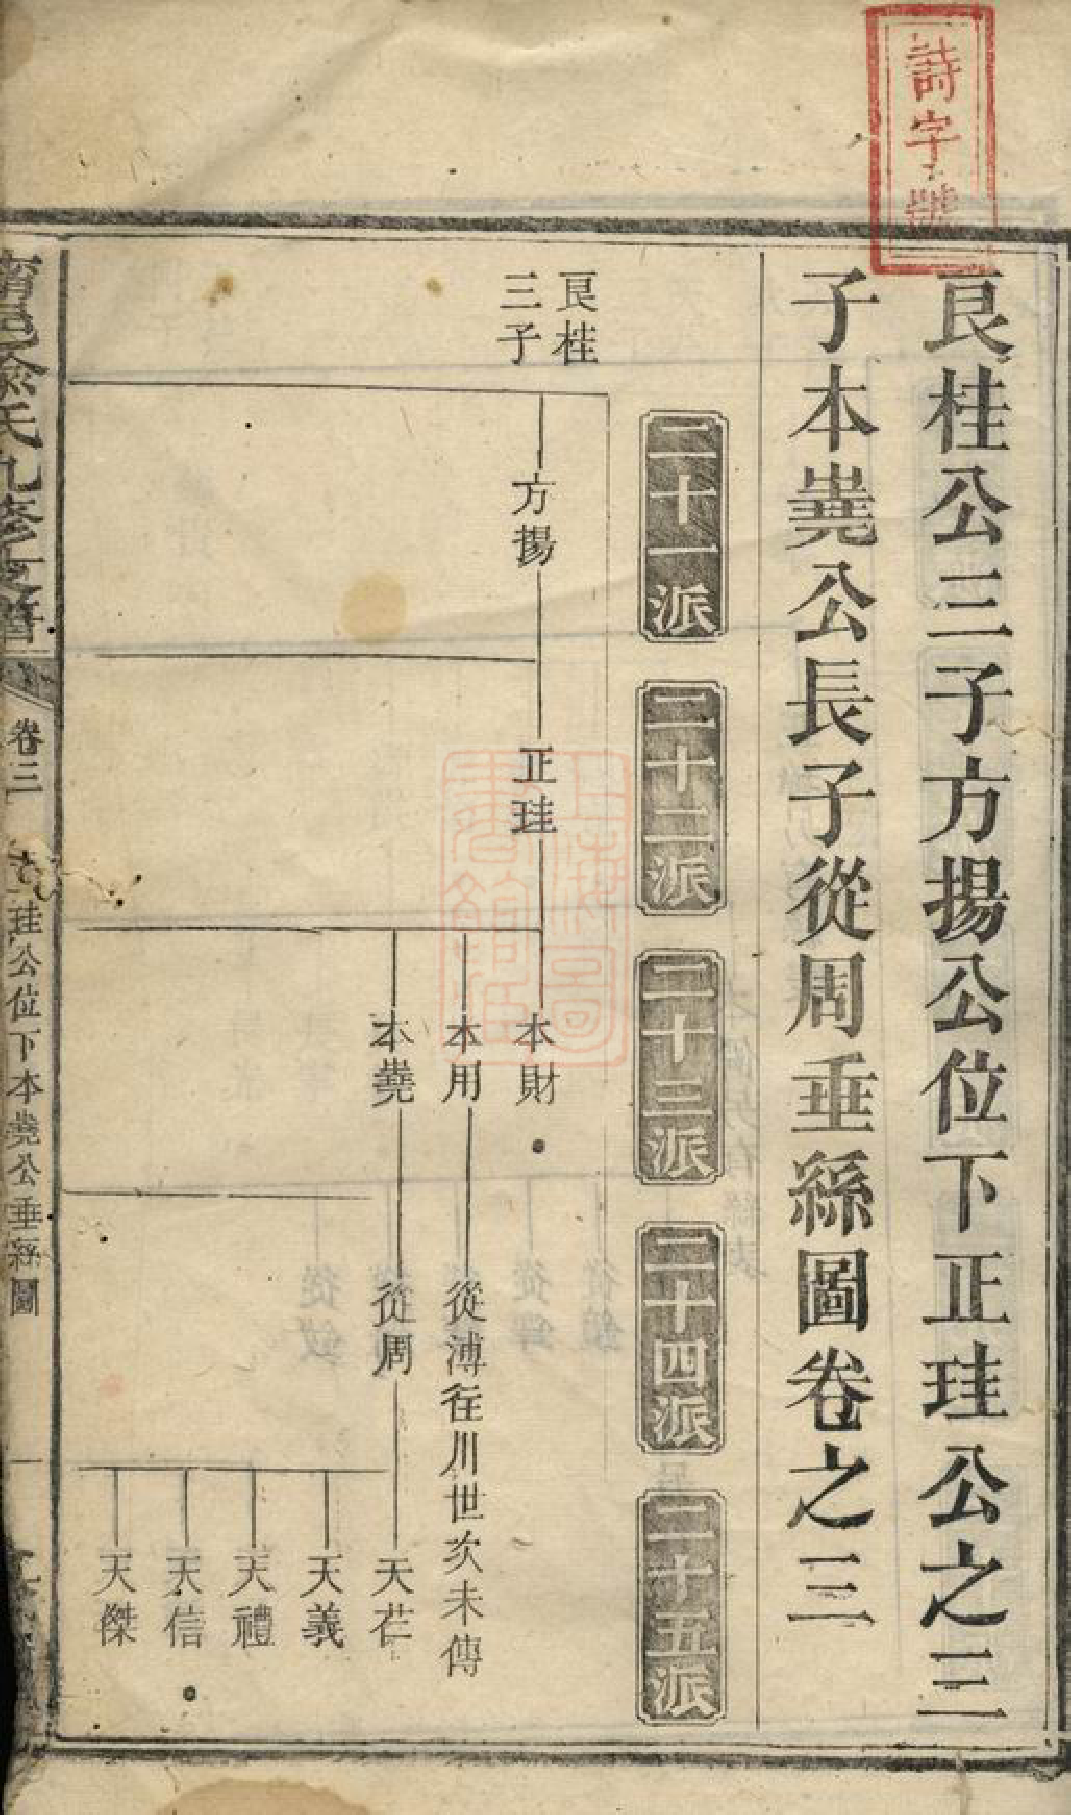 詩字號
艮桂公三子方揚公位下正珪公之三
子本蕘公長子從周垂絲圖卷之三
二十一派
二十二派
二十三派
二十四派
二十五派
艮桂
三子
方揚
正珪
本財
本用
本蕘
從溥徃川世次未傳
從周
天仁
天義
天禮
天信
天傑
氏九修支譜
卷三
珪公位下本蕘公垂絲圖
一
上海圖書館藏